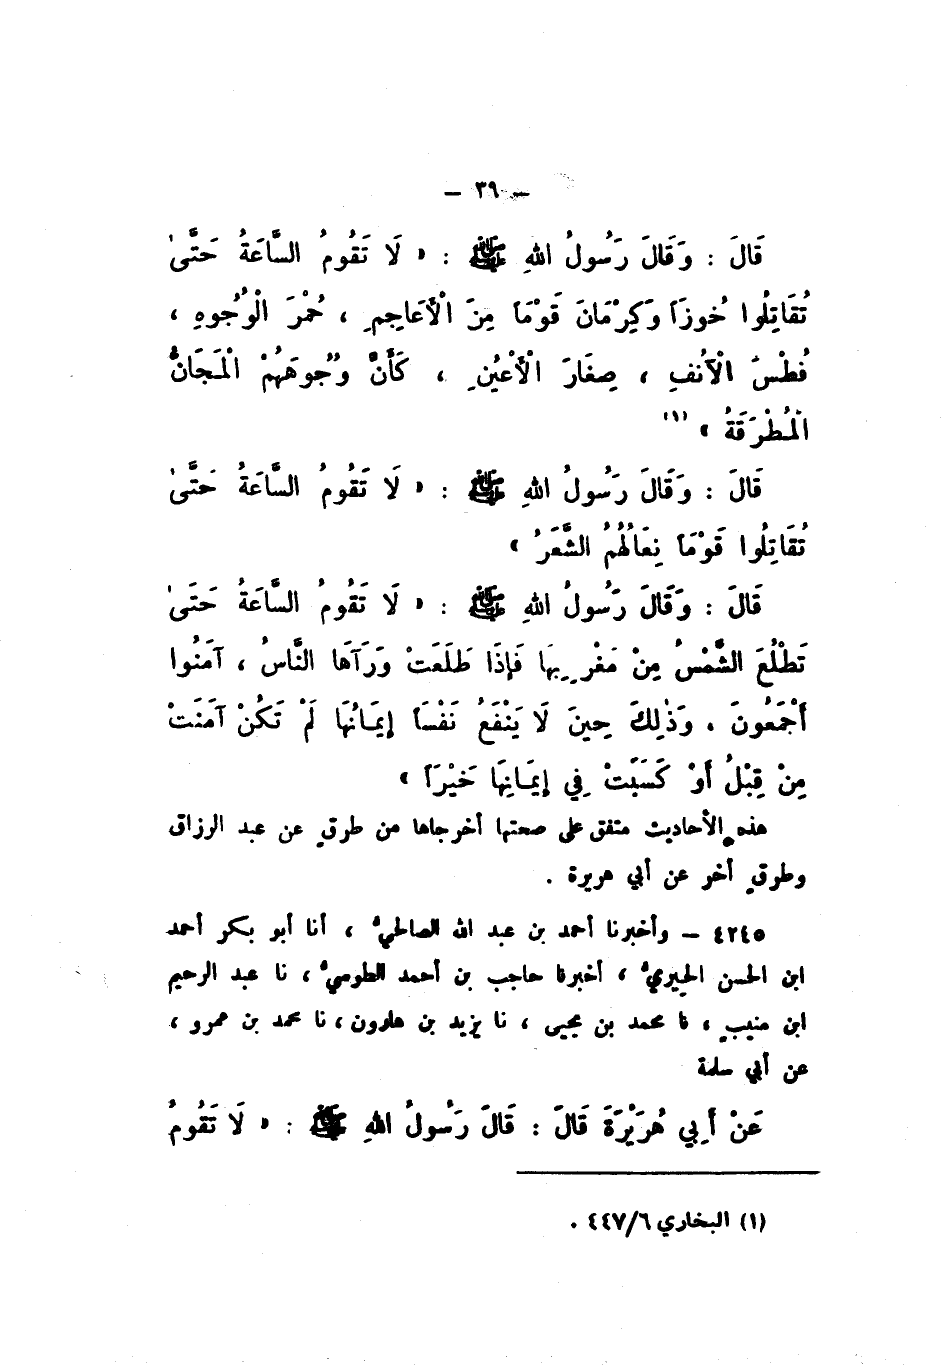 — ٣٩ —
قَالَ : وَقَالَ رَسُولُ اللهِ ﷺ : « لَا تَقُومُ السَّاعَةُ حَتَّىٰ
تُقَاتِلُوا خُوزَاً وَكِرْمَانَ قَوْمَاً مِنَ الْأَعَاجِمِ ، حُمْرَ الْوُجُوهِ ،
فُطْسَ الْآنُفِ ، صِغَارَ الْأَعْيُنِ ، كَأَنَّ وُجُوهَهُمْ الْمَجَانُّ
الْمُطْرَقَةُ » (١)
قَالَ : وَقَالَ رَسُولُ اللهِ ﷺ : « لَا تَقُومُ السَّاعَةُ حَتَّىٰ
تُقَاتِلُوا قَوْمَاً نِعَالُهُمُ الشَّعَرُ »
قَالَ : وَقَالَ رَسُولُ اللهِ ﷺ : « لَا تَقُومُ السَّاعَةُ حَتَّىٰ
تَطْلُعَ الشَّمْسُ مِنْ مَغْرِبِهَا فَإِذَا طَلَعَتْ وَرَآهَا النَّاسُ ، آمَنُوا
أَجْمَعُونَ . وَذٰلِكَ حِينَ لَا يَنْفَعُ نَفْسَاً إِيمَانُهَا لَمْ تَكُنْ آمَنَتْ
مِنْ قَبْلُ أَوْ كَسَبَتْ فِي إِيمَانِهَا خَيْرَاً »
هذه الأحاديث متفق على صحتها أخرجاها من طرقٍ عن عبد الرزاق
وطرقٍ أخر عن أبي هريرة .
٤٢٤٥ – وأخبرنا أحمد بن عبد الله الصالحيُّ ، أنا أبو بكر أحمد
ابن الحسن الحِيريُّ ، أخبرنا حاجب بن أحمد الطوسيُّ ، نا عبد الرحيم
ابن منيبٍ ، نا محمد بن يحيى ، نا يزيد بن هارون ، نا محمد بن عمرو ،
عن أبي سلمة
عَنْ أَبِي هُرَيْرَةَ قَالَ : قَالَ رَسُولُ اللهِ ﷺ : « لَا تَقُومُ
(١) البخاري ٤٤٧/٦ .